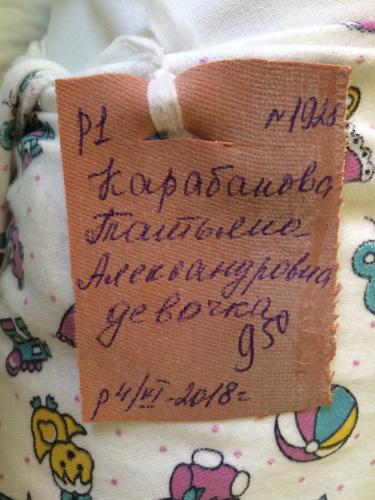 Р1 N1928
Карабанова
Татьяна
Александровна
девочка
9⁵⁰
р 4/VI-2018г